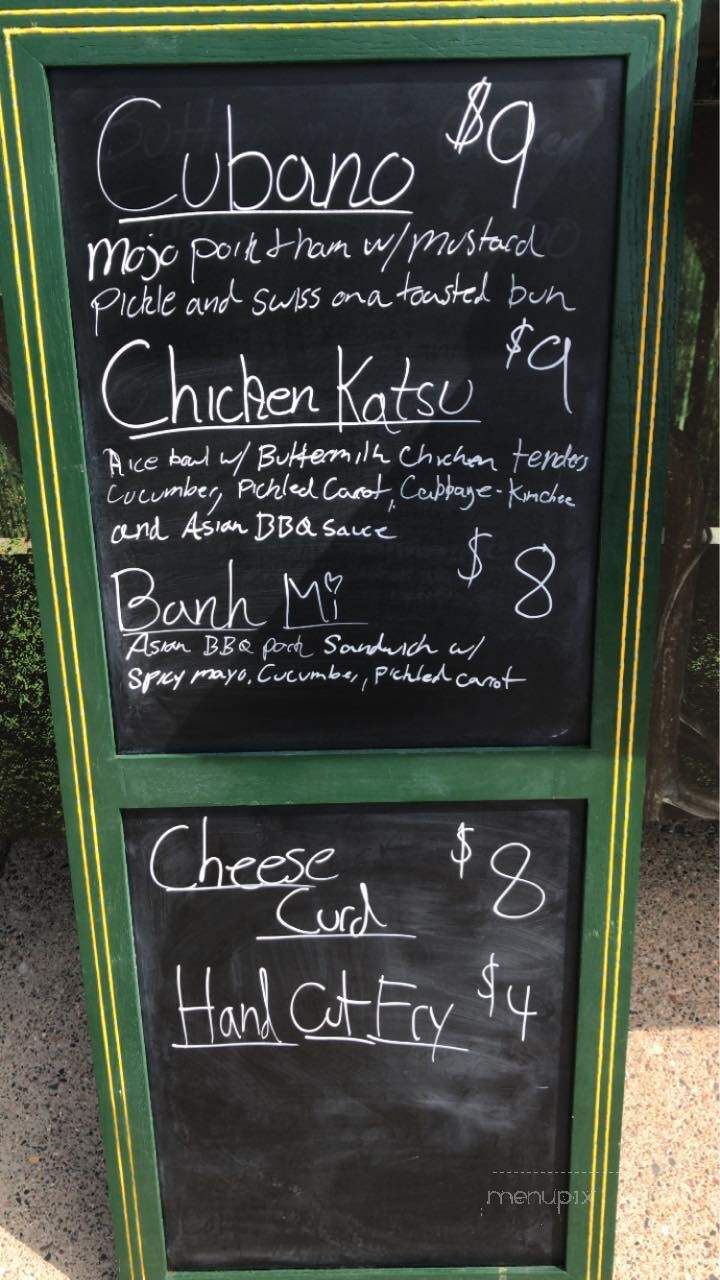 Cubano $9
Mojo pork & ham w/ mustard
Pickle and swiss on a toasted bun
Chicken Katsu $9
Rice bowl w/ Buttermilk Chicken tenders
Cucumber, Pickled Carot, Cabbage - Kimchee
and Asian BBQ Sauce
Banh Mi $8
Asian BBQ pork Sandwich w/
Spicy mayo, Cucumber, Pickled carrot
Cheese $8
Curd
Hand Cut Fry $4
menupix